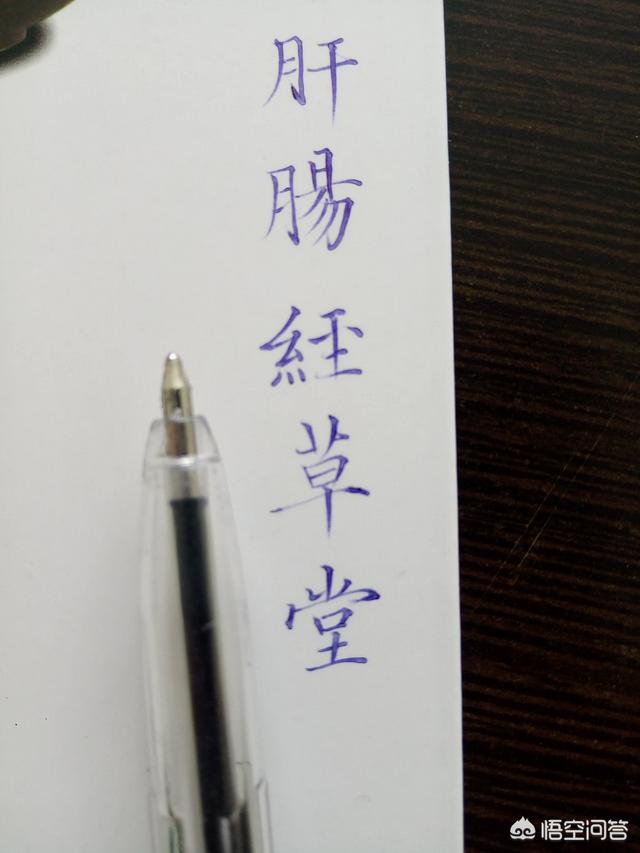 肝腸經草堂
悟空问答